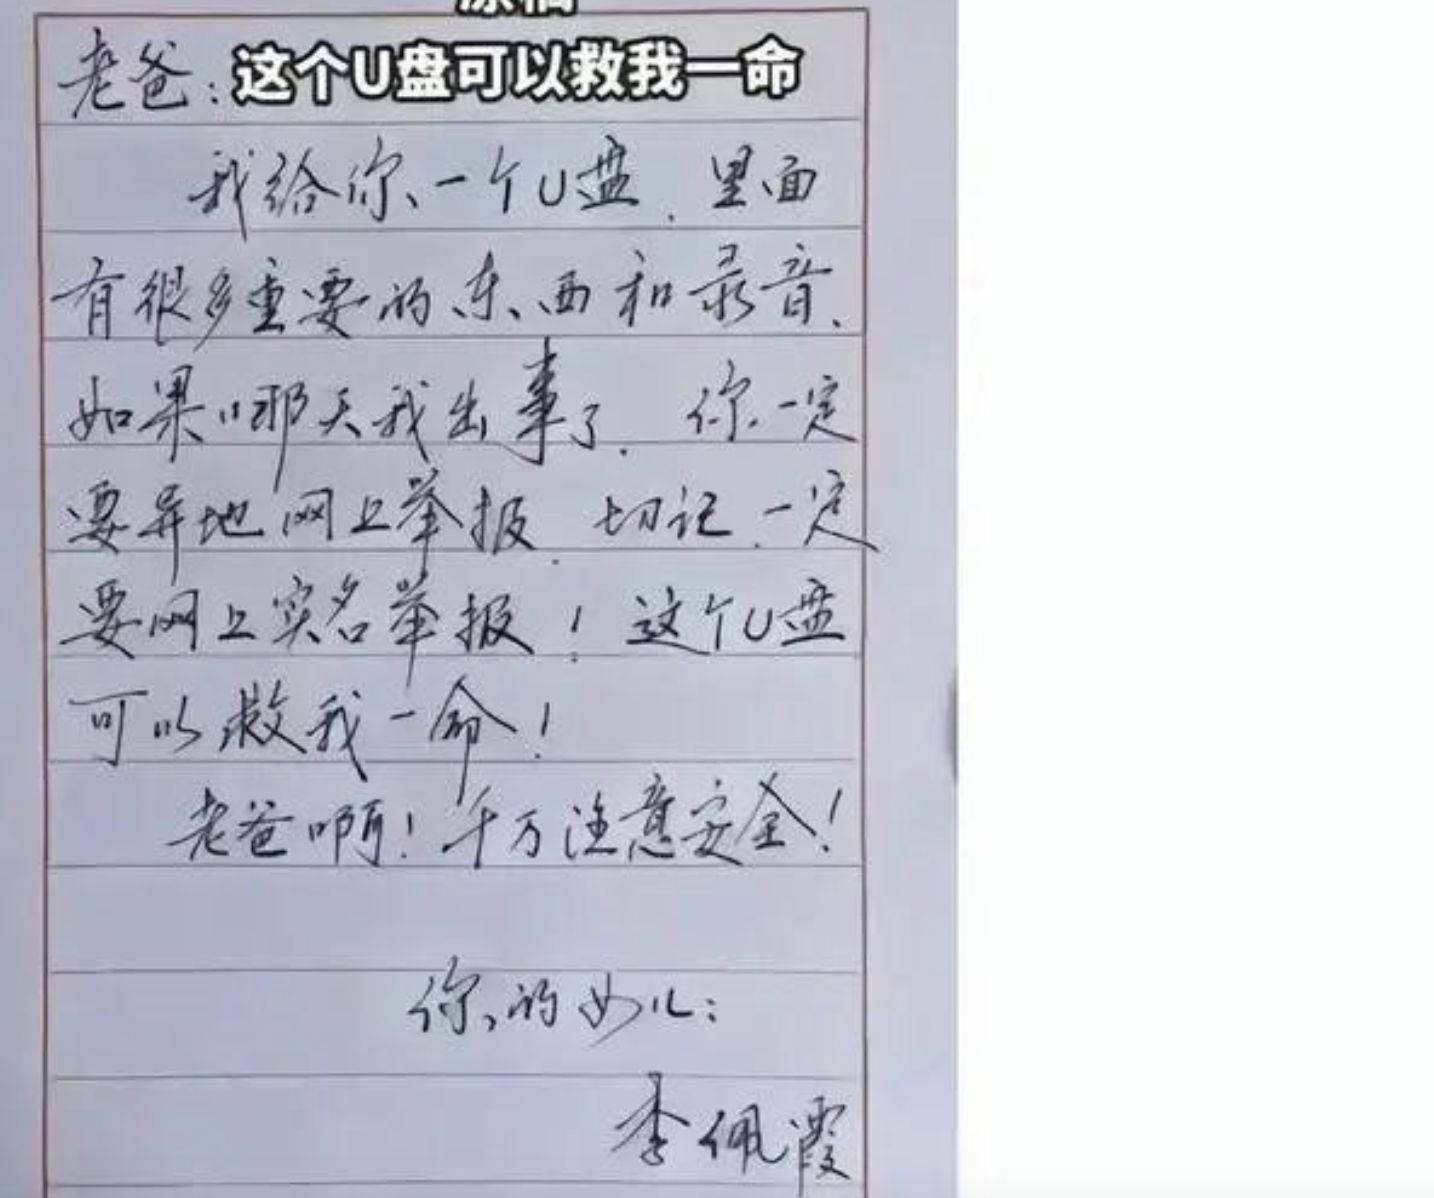 原稿
老爸：
这个U盘可以救我一命
我给你一个U盘．里面
有很多重要的东西和录音．
如果哪天我出事了．你一定
要异地网上举报．切记．一定
要网上实名举报！这个U盘
可以救我一命！
老爸啊！千万注意安全！
你的女儿：
李佩霞